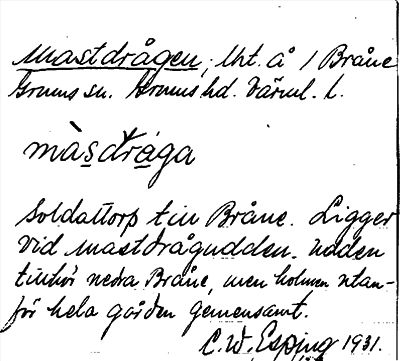 Mastdrågen, lht. å 1 Bråne
Grums sn. Grums hd. Värml. l.
màs̱tdrága
Soldattorp till Bråne. Ligger
vid Mastdrågudden. Udden
tillhör nedra Bråne, men holmen utan-
för hela gården gemensamt.
C. W. Esping 1931.